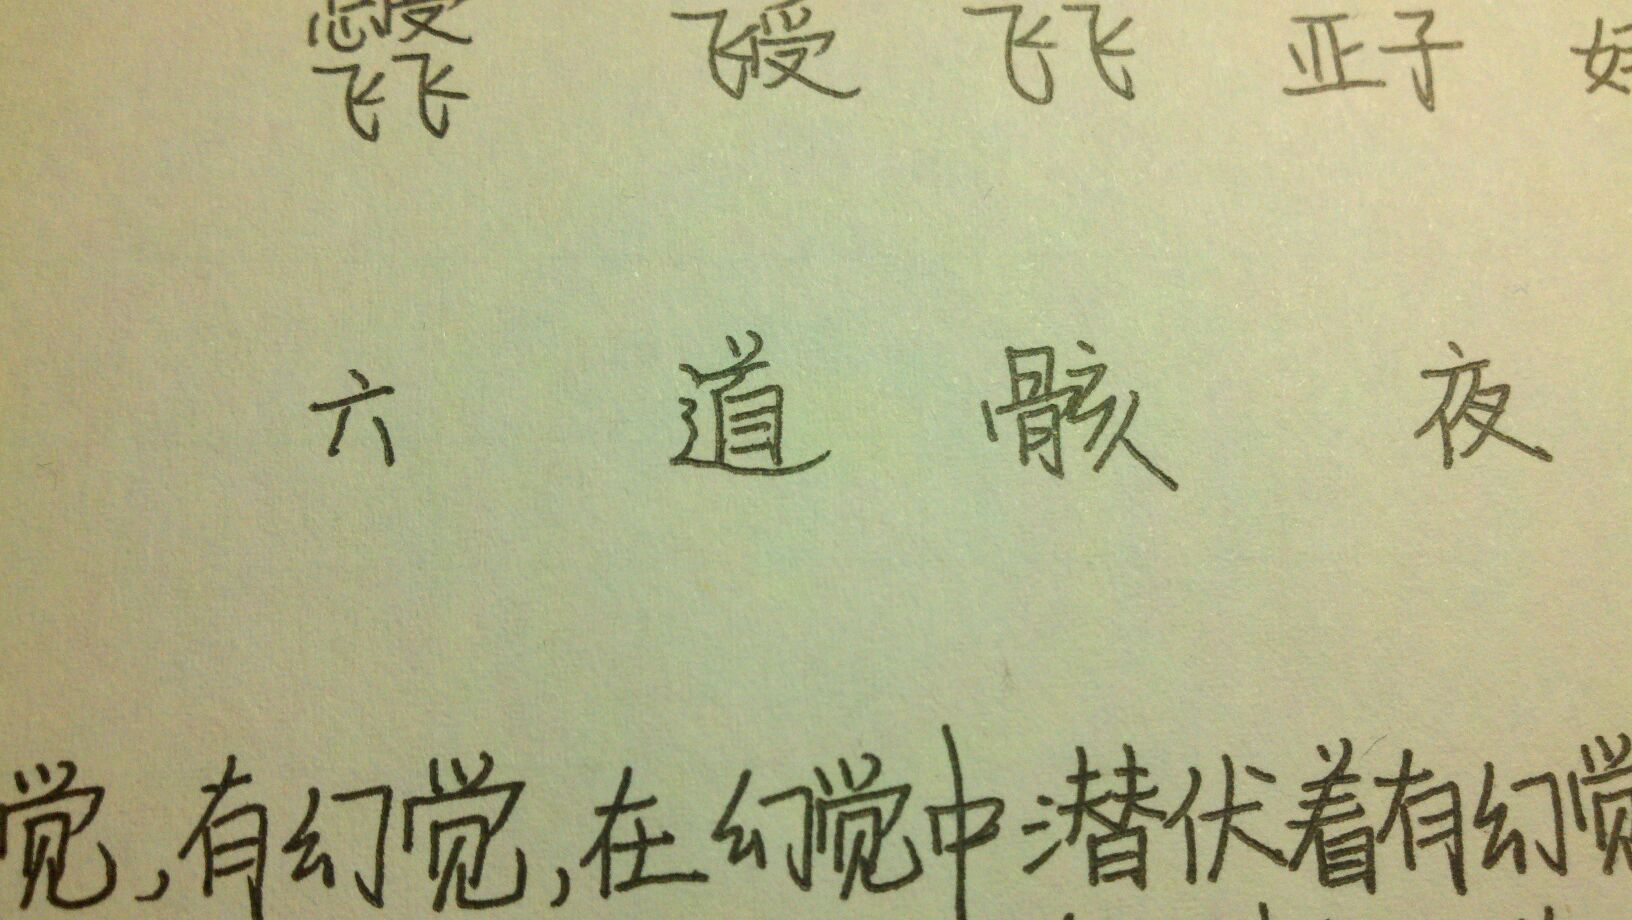 飞受 飞飞 亚子
飞飞
六 道 骸 夜
觉,有幻觉,在幻觉中潜伏着有幻觉